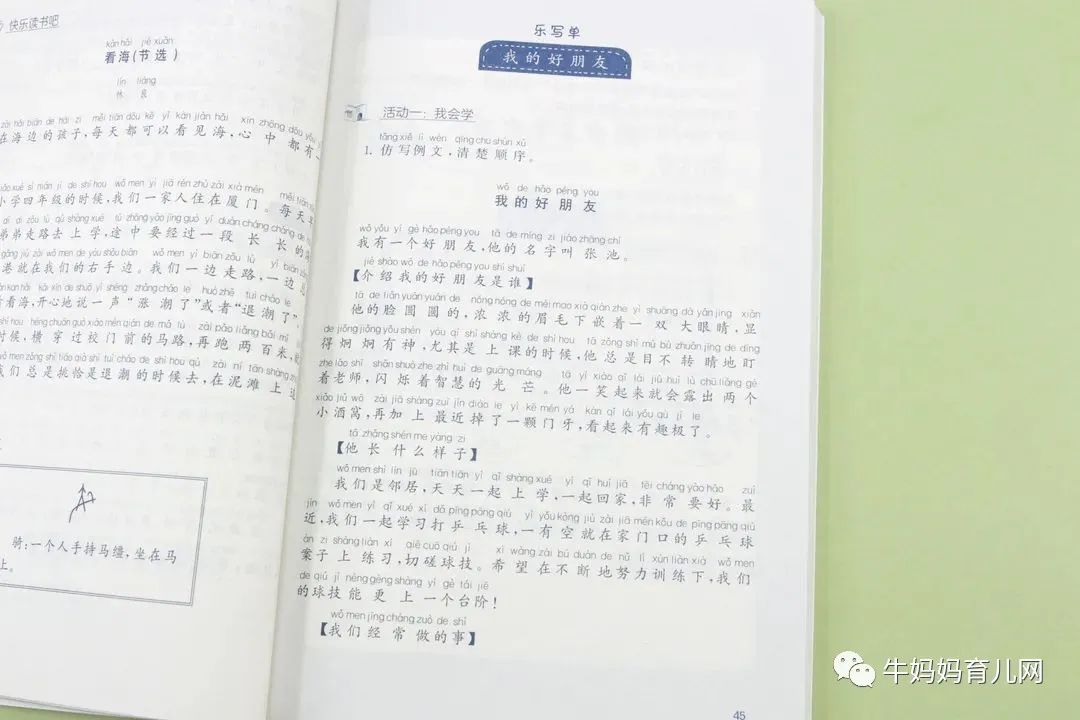 快乐读书吧
kàn hǎi jié xuǎn
看海(节选)
lín liáng
林 良
在海边的孩子,每天都可以看见海,心中都有一
小学四年级的时候,我们一家人住在厦门。每天早
弟弟走路去上学,途中要经过一段长长的海
港就在我们的右手边。我们一边走路,一边
看海,开心地说一声“涨潮了”或者“退潮了”。
时候,横穿过校门前的马路,再跑两百米,
我们总是挑恰是退潮的时候去,在泥滩上
骑:一个人手持马缰,坐在马
上。
乐写单
我的好朋友
活动一:我会学
fǎng xiě lì wén qīng chu shùn xù
1. 仿写例文,清楚顺序。
wǒ de hǎo péng you
我的好朋友
wǒ yǒu yí gè hǎo péng you tā de míng zi jiào zhāng chí
我有一个好朋友,他的名字叫张池。
jiè shào wǒ de hǎo péng you shì shuí
【介绍我的好朋友是谁】
tā de liǎn yuán yuán de nóng nóng de méi mao xià qiàn zhe yì shuāng dà yǎn jing xiǎn
他的脸圆圆的,浓浓的眉毛下嵌着一双大眼睛,显
de jiǒng jiǒng yǒu shén yóu qí shì shàng kè de shí hou tā zǒng shì mù bù zhuǎn jīng de dīng
得炯炯有神,尤其是上课的时候,他总是目不转睛地盯
zhe lǎo shī shǎn shuò zhe zhì huì de guāng máng tā yí xiào qǐ lái jiù huì lù chū liǎng gè
着老师,闪烁着智慧的光芒。他一笑起来就会露出两个
xiǎo jiǔ wō zài jiā shàng zuì jìn diào le yì kē mén yá kàn qǐ lái yǒu qù jí le
小酒窝,再加上最近掉了一颗门牙,看起来有趣极了。
tā zhǎng shén me yàng zi
【他长什么样子】
wǒ men shì lín jū tiān tiān yì qǐ shàng xué yì qǐ huí jiā fēi cháng yào hǎo zuì
我们是邻居,天天一起上学,一起回家,非常要好。最
jìn wǒ men yì qǐ xué xí dǎ pīng pāng qiú yì yǒu kòng jiù zài jiā mén kǒu de pīng pāng qiú
近,我们一起学习打乒乓球,一有空就在家门口的乒乓球
àn zi shàng liàn xí qiē cuō qiú jì xī wàng zài bú duàn de nǔ lì xùn liàn xià wǒ men
案子上练习,切磋球技。希望在不断地努力训练下,我们
de qiú jì néng gèng shàng yí gè tái jiē
的球技能更上一个台阶!
wǒ men jīng cháng zuò de shì
【我们经常做的事】
45
牛妈妈育儿网